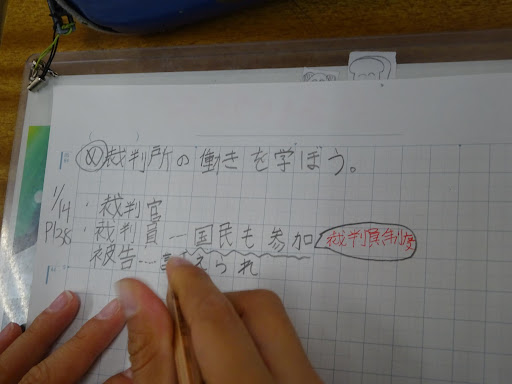 め 裁判所の働きを学ぼう。
1/14 ・裁判官
P128 ・裁判員―国民も参加 裁判員制度
被告……えられ